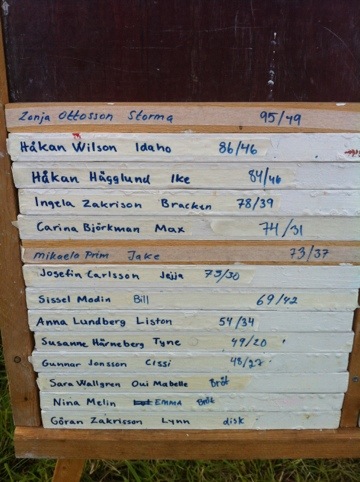 Zonja Ottosson Storma 95/49
Håkan Wilson Idaho 86/46
Håkan Hägglund Ike 84/46
Ingela Zakrison Bracken 78/39
Carina Björkman Max 74/31
Mikaela Prim Jake 73/37
Josefin Carlsson Jejja 73/30
Sissel Modin Bill 69/42
Anna Lundberg Liston 54/34
Susanne Härneberg Tyne 49/20
Gunnar Jonsson Cissi 48/27
Sara Wallgren Oui Mabelle Bröt
Nina Melin EMMA Bröt
Göran Zakrisson Lynn disk